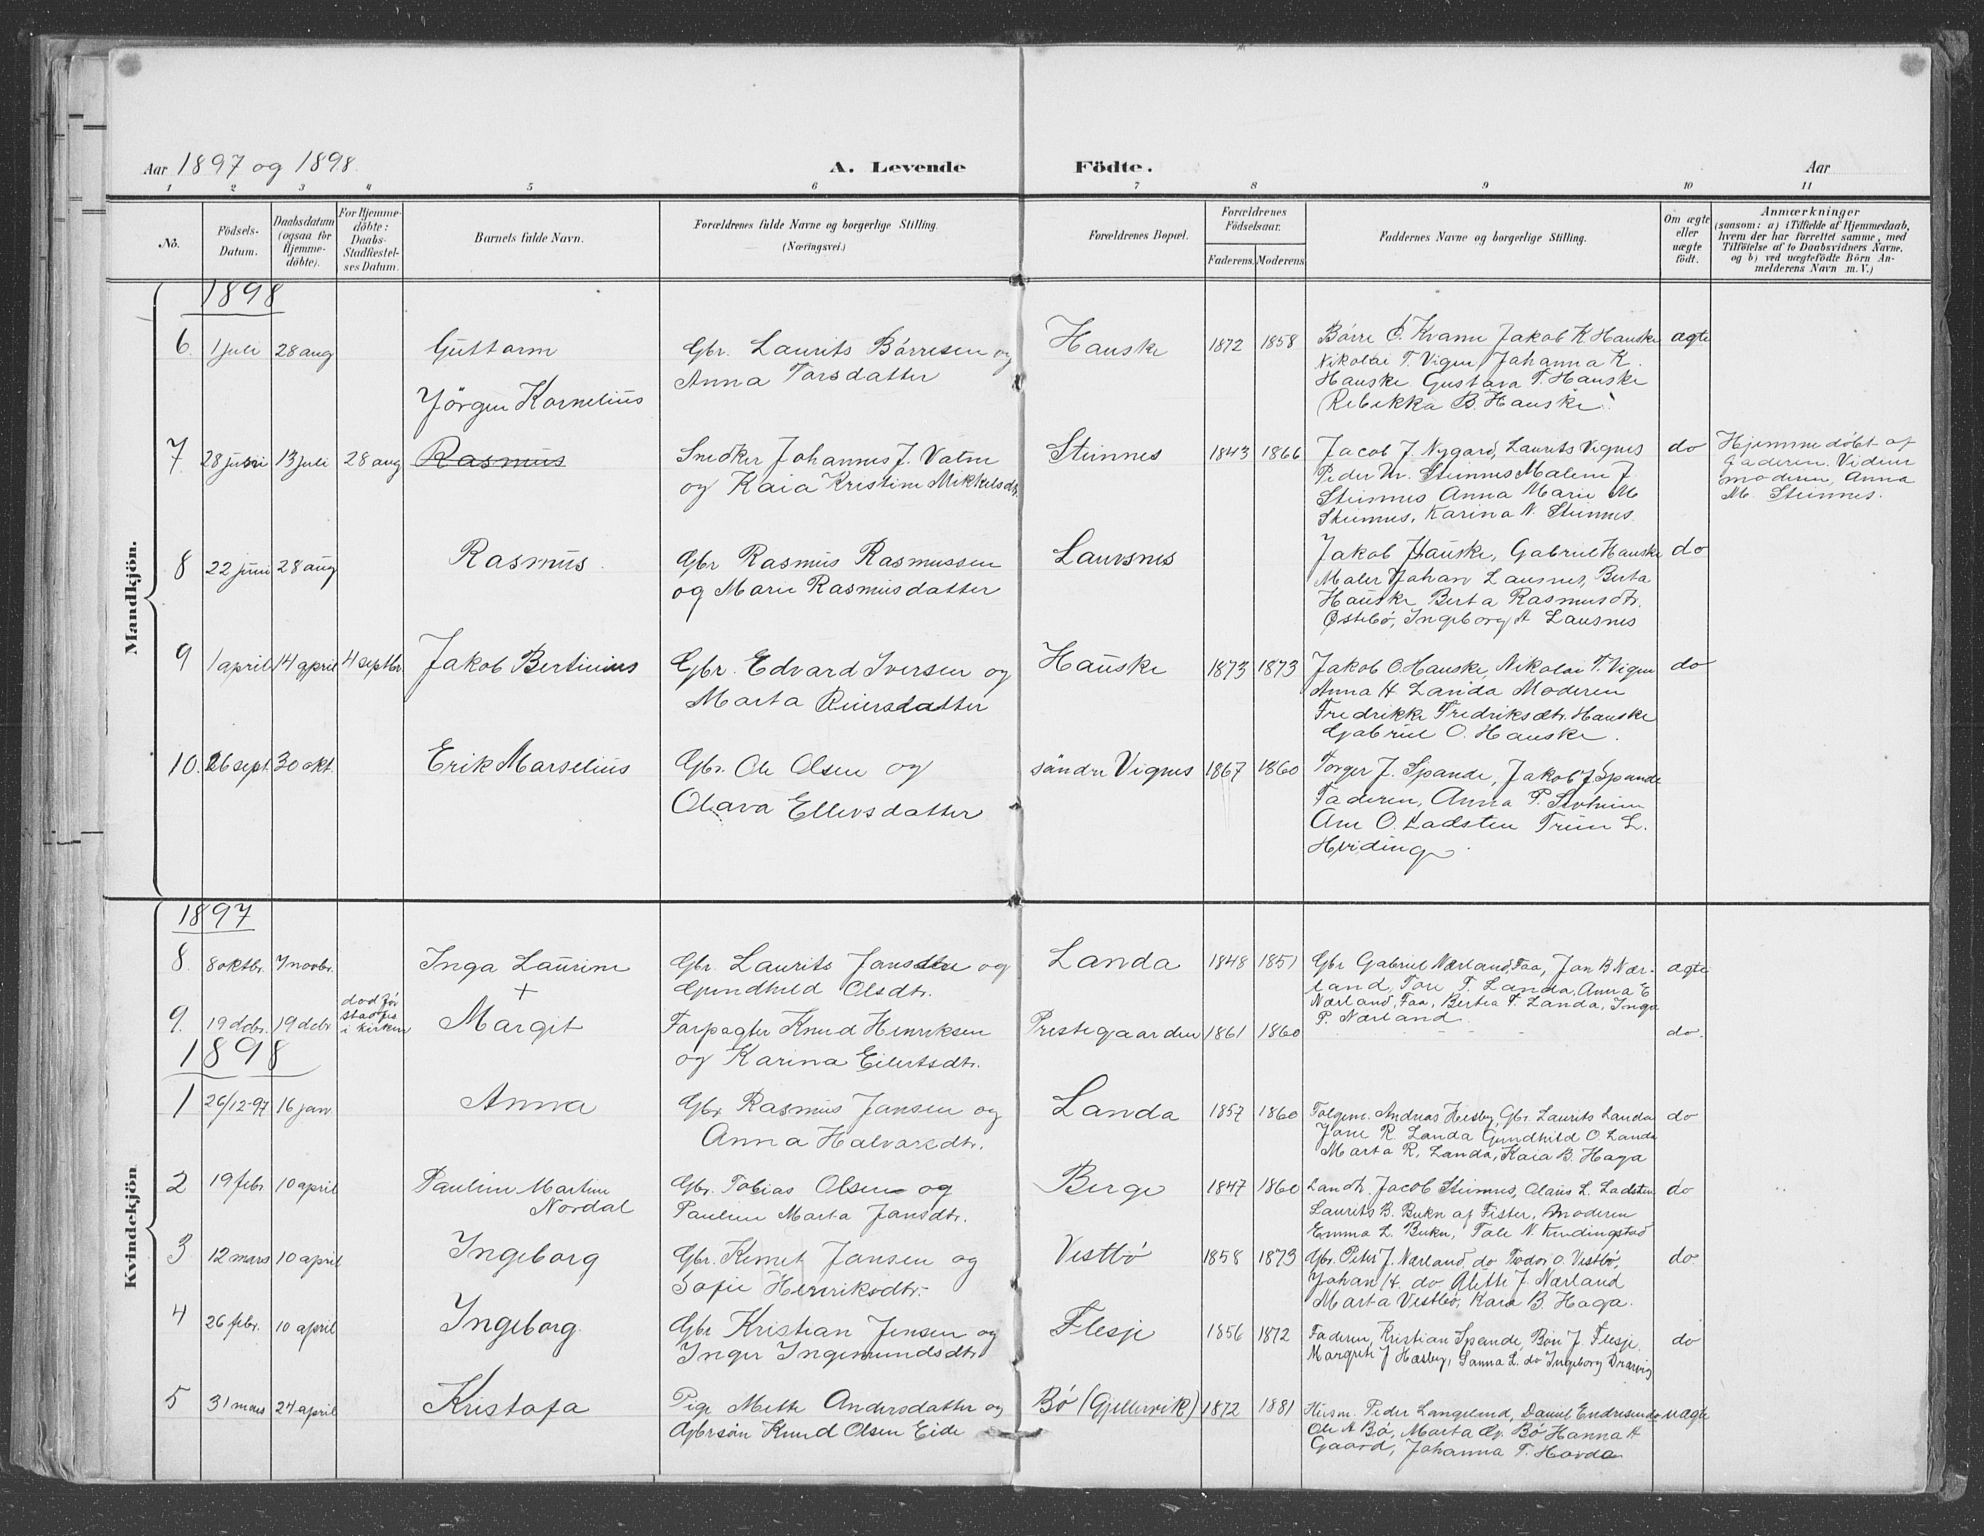 Aar 1897 og 1898. A. Levende Födte. Aar
1 2 3 4 5 6 7 8 9 10 11
No.
Födsels-Datum.
Daabsdatum (ogsaa for Hjemme-döbte).
For Hjemme-döbte: Daabs-Stadfæstel-ses Datum.
Barnets fulde Navn.
Forældrenes fulde Navne og borgerlige Stilling. (Næringsvei.)
Forældrenes Bopæl.
Forældrenes Födselsaar.
Faderens. Moderens.
Faddernes Navne og borgerlige Stilling.
Om ægte eller uægte födt.
Anmærkninger
(saasom: a) i Tilfælde af Hjemmedaab,
hvem der har forrettet samme, med
Tilföielse af to Daabsvidners Navne,
og b) ved uægtefödte Börn An-
melderens Navn m. V.)
Mandkjön.
1898
6 1 juli 28 aug Guttorm Gbr. Laurits Børresen og Hauske 1872 1858 Børre O. Kvame Jakob K. Hauske ægte
Anna Tarsdatter
Nikolai T. Vigen, Johanna K.
Hauske Gustava T. Hauske
Rebekka B. Hauske.
Jörgen Kornelius
7 28 juni 13 juli 28 aug Rasmus Snedker Johannes J. Vatne Steinnes 1843 1866 Jacob J. Nygard, Laurits Vignes do Hjemmedøbt af
og Kaia Kristine Mikkelsdtr.
Peder M. Steinnes Malene J.
Steinnes Anna Marie M
Steinnes, Karina N. Steinnes.
faderen. Vidner
moderen, Anna
M. Steinnes.
8 22 juni 28 aug Rasmus. Gbr Rasmus Rasmussen Lausnes Jakob Hauske, Gabriel Hauske do
og Marie Rasmusdatter
Maler Johan Lausnes, Berta
Hauske Berta Rasmusdtr.
Østebø, Ingeborg A Lausnes
9 1 april 14 april 4 septbr Jakob Bertinius Gbr. Edvard Iversen og Hauske 1873 1873 Jakob O. Hauske, Nikolai T. Vigen do
Marta Reiersdatter
Anna H Landa Moderen
Fredrikke Fredriksdtr. Hauske
Gabriel O. Hauske.
10. 26 sept. 30 okt. Erik Marselius Gbr. Ole Olsen og söndre Vignes 1867 1860 Torger J. Spande, Jakob J. Spande
Olava Ellevsdatter
Faderen, Anna P.
Ane O. Ladsten Trine L.
Hviding
Kvindekjön
1897
8. 8 oktbr. 7 novbr. Inga Laurine Gbr. Laurits Jansen og Landa 1848 1851 Gbr Gabriel Nærland, Faa, Jan B Nær- ægte
Gundhild Olsdtr.
land, Tore T. Landa, Anna E
Nærland, Faa, Bertea T. Landa, Inga
P. Nærland
9. 19 debr. 19 debr død før stadfæs i kirken + Margit Forpagter Knud Henriksen Prestegaarden 1861 1860 do.
og Karina Eilertsdtr.
1898
1 26/12-97 16 jan Anna Gbr Rasmus Jansen og Landa 1857 1860 Folgem. Andreas Hesby, Gbr. Laurits Landa do
Anna Halvarsdtr.
Jane R. Landa Gundhild O. Landa
Marta R. Landa, Kaia B. Haga
2 19 febr 10 april Pauline Martine Gbr. Tobias Olsen og Berge 1847 1860 Landh. Jacob Steinnes, Claus L. Ladsten do
Nordal Pauline Marta Jansdtr.
Laurits B. Bukn af Fister, Moderen
Emma L. Bukn, Tale N. Kindingstad
3 12 mars 10 april Ingeborg Gbr. Kernet Jansen og Vestbø 1858 1873 Gbr. Peter J. Nærland, do Teodor O. Vestbø, do.
Sofie Henriksdtr.
Johan H. do Alette J. Nærland
Marta Vestbø, Kaia B. Haga.
4 26 febr. 10 april Ingeborg. Gbr Kristian Jensen og Flesje 1856 1872 Faderen, Kristian Spande, Jens J. Flesje. do
Inger Ingemundsdtr
Margrete J Hæsby, Sanna L. do Ingeborg
5 31 mars 24 april Kristofa Pige Mette Andersdatter og Bø (Gjellervik) 1872 1881 Husm. Peder Langeland, Daniel Endresen do uægte
Gbrsön Knud Olsen Eide
Ole A Bø, Marta Bø Hanna A
Gaard, Johanna T. Havda